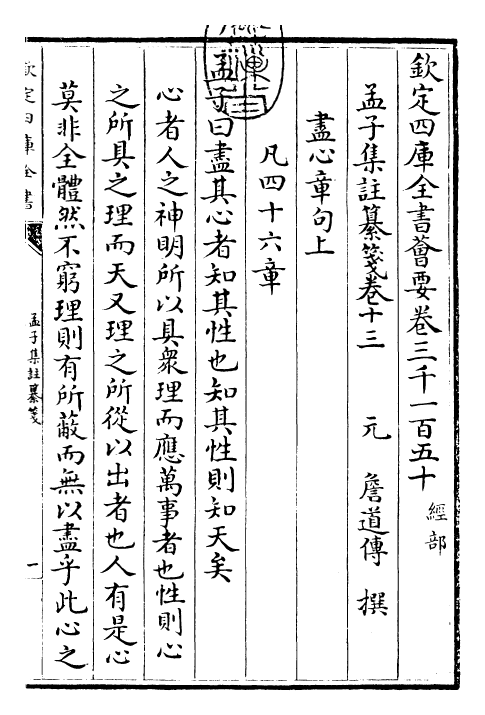 欽定四庫全書薈要卷三千一百五十 經部
孟子集註纂箋卷十三 元 詹道傳 撰
盡心章句上
凡四十六章
孟子曰盡其心者知其性也知其性則知天矣
心者人之神明所以具衆理而應萬事者也性則心
之所具之理而天又理之所從以出者也人有是心
莫非全體然不窮理則有所蔽而無以盡乎此心之
欽定四庫全書
孟子集註纂箋
一